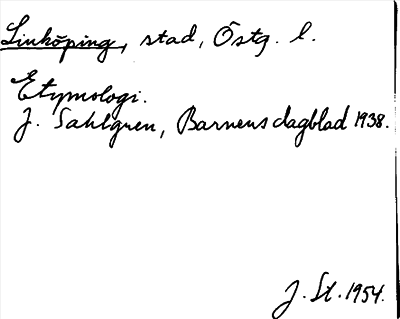 Linköping, stad, Östg. l.
Etymologi.
J. Sahlgren, Barnens dagblad 1938.
J. St. 1954.